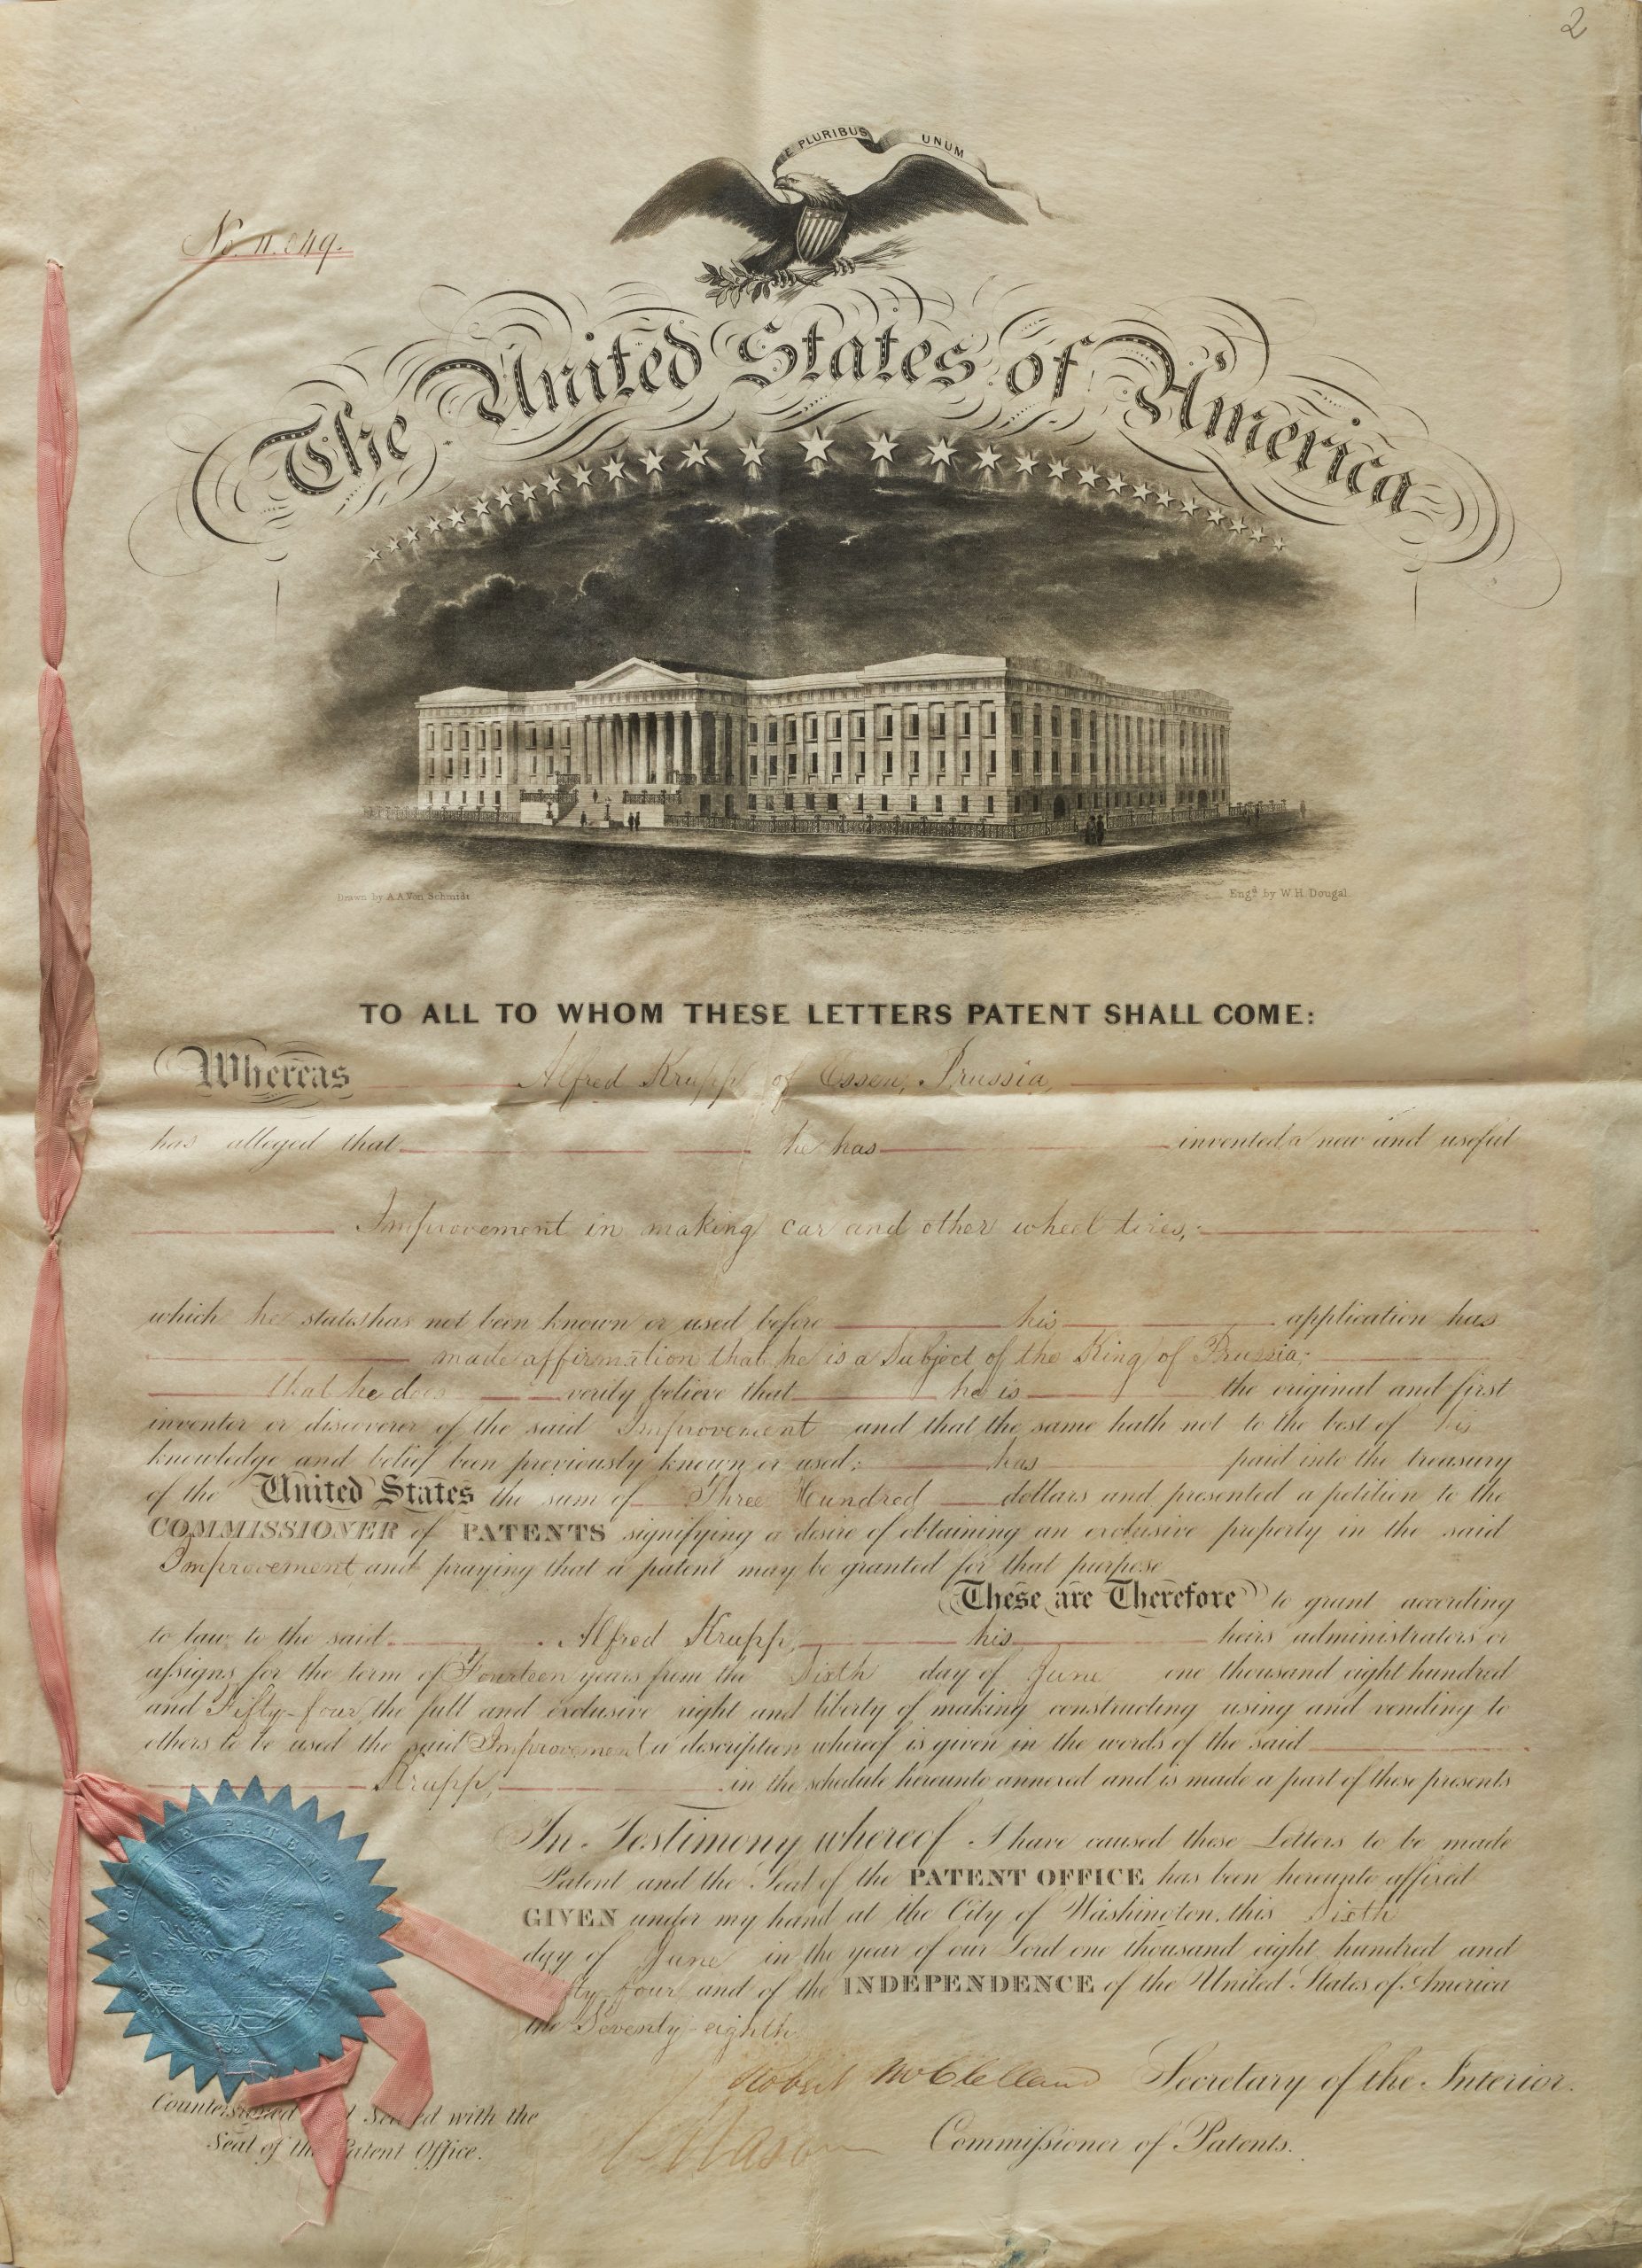 2
E PLURIBUS UNUM
No. 11.049.
The United States of America
Drawn by A.A Von Schmidt
Engd by W.H. Dougal
TO ALL TO WHOM THESE LETTERS PATENT SHALL COME:
Whereas Alfred Krupp, of Essen, Prussia,
has alleged that he has invented a new and useful
Improvement in making car and other wheel tires,
which he states has not been known or used before his application has
made affirmation that he is a Subject of the King of Prussia;
that he does verily believe that he is the original and first
inventor or discoverer of the said Improvement and that the same hath not to the best of his
knowledge and belief been previously known or used; has paid into the treasury
of the United States the sum of Three Hundred dollars and presented a petition to the
COMMISSIONER of PATENTS signifying a desire of obtaining an exclusive property in the said
Improvement and praying that a patent may be granted for that purpose
These are Therefore to grant according
to law to the said Alfred Krupp, his heirs administrators or
assigns for the term of Fourteen years from the Sixth day of June one thousand eight hundred
and Fifty-four the full and exclusive right and liberty of making constructing using and vending to
others to be used the said Improvement a description whereof is given in the words of the said
Krupp, in the schedule hereunto annexed and is made a part of these presents
In Testimony whereof I have caused these Letters to be made
Patent and the Seal of the PATENT OFFICE has been hereunto affixed
GIVEN under my hand at the City of Washington, this Sixth
day of June in the year of our Lord one thousand eight hundred and
fty-four and of the INDEPENDENCE of the United States of America
the Seventy-eighth.
Robert McClelland Secretary of the Interior.
C Mason Commissioner of Patents.
Countersigned Sealed with the
Seal of the Patent Office.